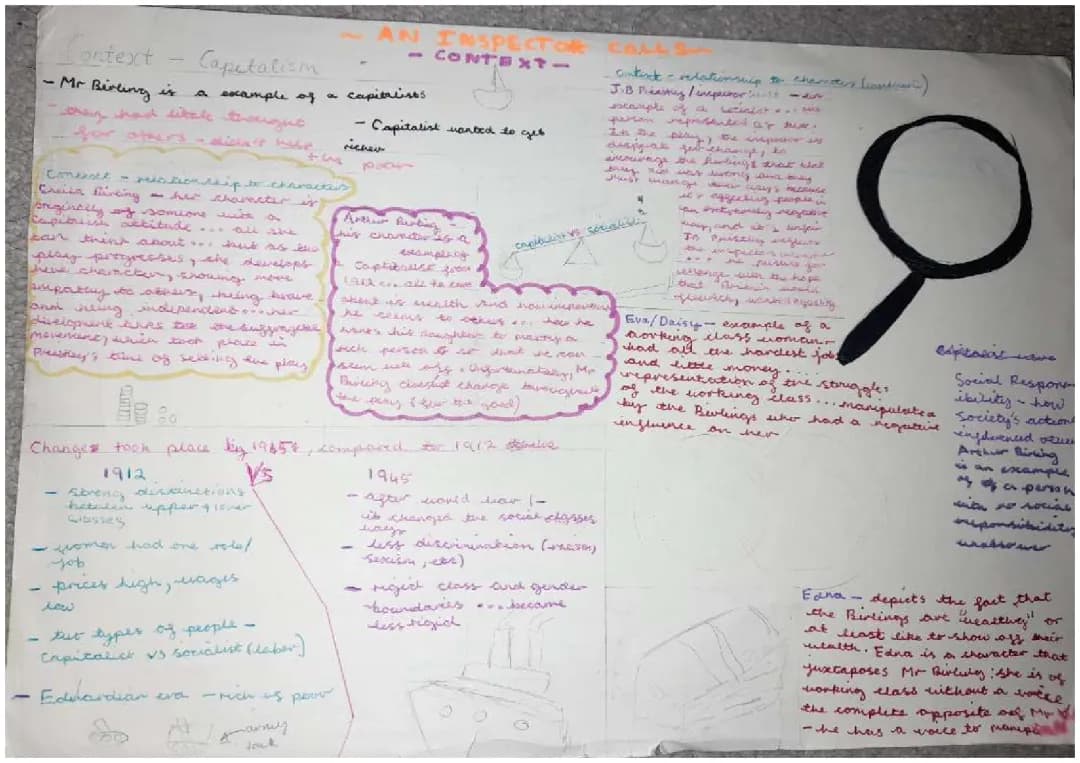 ~ AN INSPECTOR CALLS ~
- CONTEXT -
Context - Capitalism
- Mr Birling is a example of a capitalists
- they had little thought
for others - didn't help
the
poor
- Capitalist wanted to get
richer
Context - relationship to characters
Sheila Birling - her character is
originally of someone with a
Capitalist attitude ... all she
can think about ... but as the
play progresses, she develops
her character, showing more
empathy to others, being brave
and being independent ... her
development links to the suffragette
movement, which took place in
Priestley's time of setting the play
Arthur Birling -
his character is a
example of
a Capitalist from
1912 ... all he care
about is wealth and how important
he seems to others ... how he
wants his daughter to marry a
rich person so that he can
seem well off. Unfortunately, Mr
Birling doesn't change throughout
the play (for the good)
capitalist vs socialist
Context - relationship to characters
J.B Priestley / inspector
example of a socialist ...
person represented as
In the play, the inspector is
to
encourage the Birlings that what
they did was wrong and they
must change their ways because
it's affecting people in
an extremely negative
way, and it's unfair
change with the hope
that Britain would
equality
Eva/Daisy - example of a
working class woman -
had all the hardest job
and little money ....
representation of the struggles
of the working class ... manipulated
by the Birlings who had a negative
influence on her
Social Respons-
ibility - how
Society's action
influenced other
Arthur Birling
is an example
of a person
with no social
responsibilities
Changes took place by 1945, compared to 1912
1912
VS
1945
- strong distinctions
between upper & lower
classes
- women had one role/
job
- prices high, wages
low
- two types of people -
Capitalist VS socialist (labor)
- Edwardian era - rich vs poor
- after world war 1 -
it changed the social classes
ways
- less discrimination (racism,
sexism, etc)
- rigid class and gender
boundaries ... became
less rigid
Edna - depicts the fact that
the Birlings are "wealthy" or
at least like to show off their
wealth. Edna is a character that
juxtaposes Mr Birling: she is of
working class without a voice
the complete opposite of Mr
- he has a voice to
army
tank